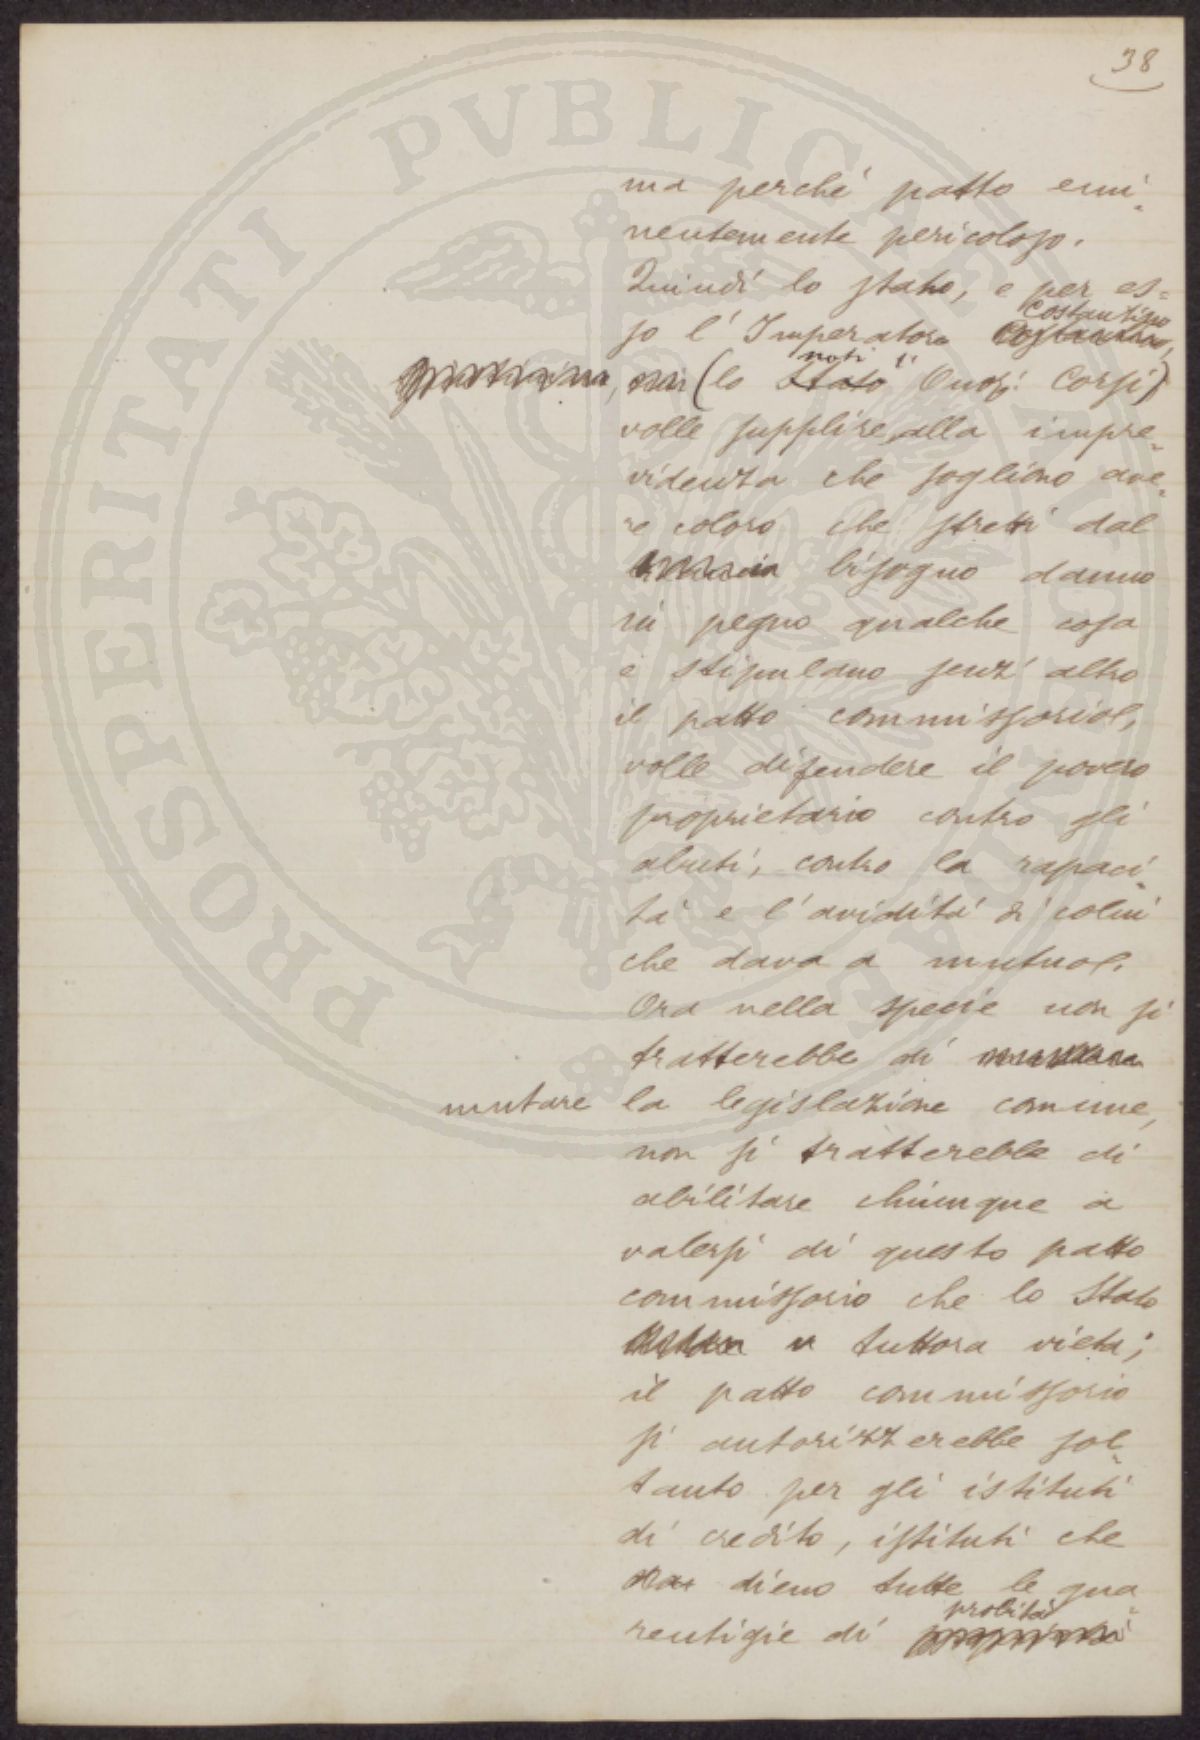 38
ma perché patto emi-
nentemente pericoloso.
Quindi lo stato, e per es-
so l'Imperatore Costantino,
(lo noti l' Onor: Corsi)
volle supplire alla impre-
videnza che sogliono ave-
re coloro che stretti dal
bisogno danno
in pegno qualche cosa
e stipulano senz'altro
il patto commissorio,
volle difendere il povero
proprietario contro gli
abusi, contro la rapaci-
tà e l'avidità di colui
che dava a mutuo.
Ora nella specie non si
tratterebbe di
mutare la legislazione comune,
non si tratterebbe di
abilitare chiunque a
valersi di questo patto
commissorio che lo Stato
tuttora vieta;
il patto commissorio
si autorizzerebbe sol-
tanto per gli istituti
di credito, istituti che
dieno tutte le gua-
rentigie di probità
PROSPERITATI PVBLICAE AVGENDAE